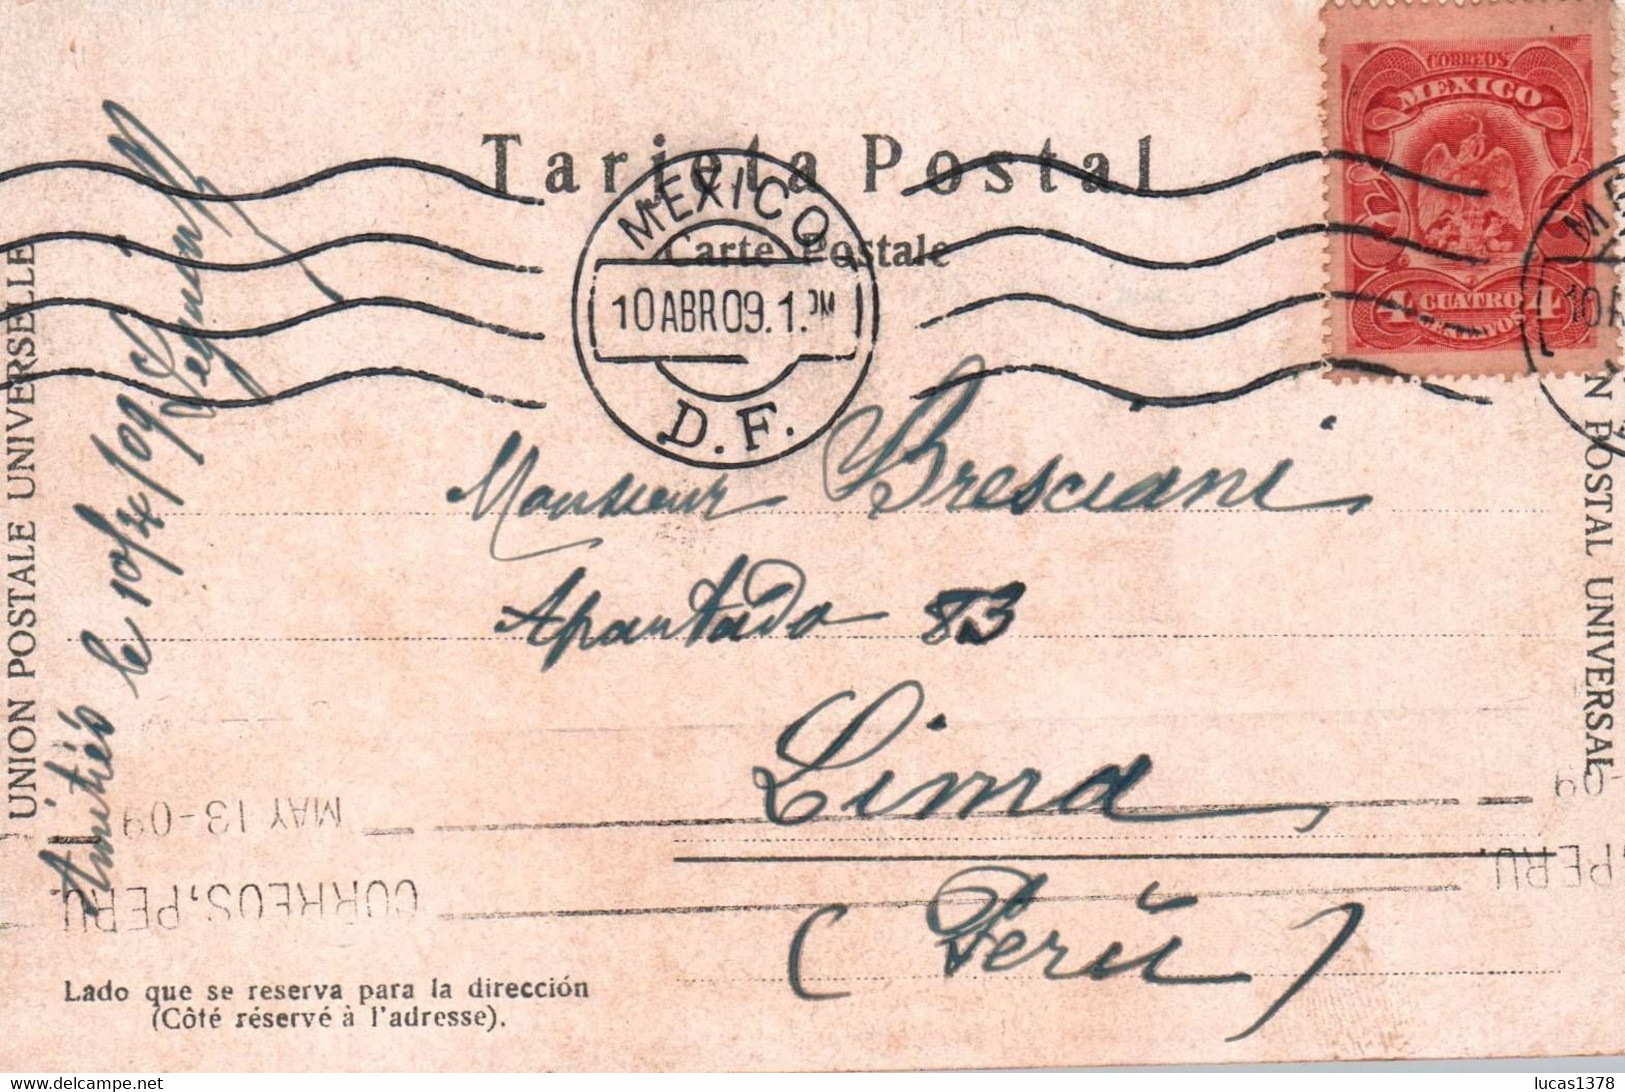 Tarjeta Postal
Carte Postale
UNION POSTALE UNIVERSELLE
UNION POSTAL UNIVERSAL
CORREOS
MEXICO
4 CUATRO 4
CENTAVOS
MEXICO
10 ABR 09. 1. PM
D. F.
10 A
Monsieur Bresciani
Apartado 83
Lima
(Perú)
Amitiés le 10/4/09
MAY 13-09
CORREOS, PERU.
09
PERU.
Lado que se reserva para la dirección
(Côté réservé à l'adresse).
lucas1378